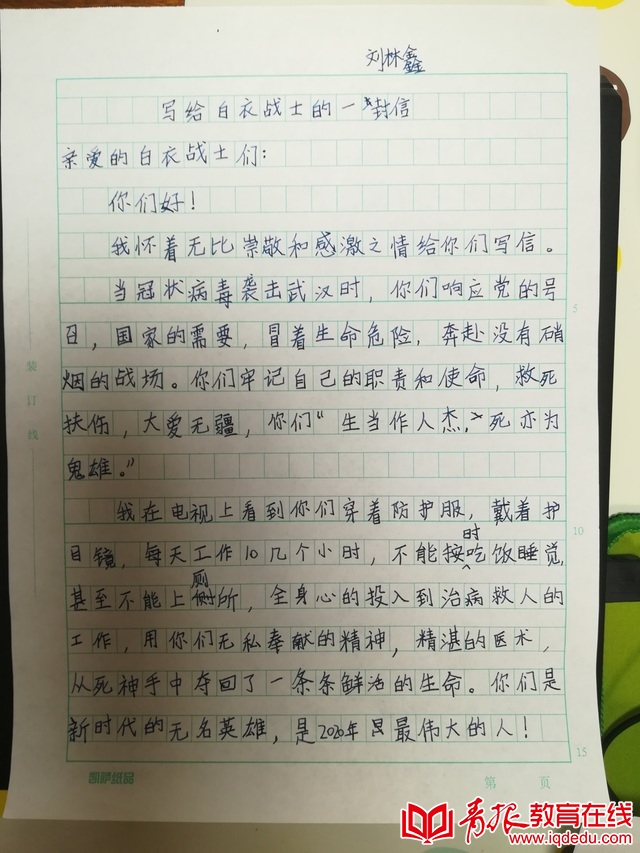 刘林鑫
写给白衣战士的一封信
亲爱的白衣战士们：
你们好！
我怀着无比崇敬和感激之情给你们写信。
当冠状病毒袭击武汉时，你们响应党的号
召，国家的需要，冒着生命危险，奔赴没有硝
烟的战场。你们牢记自己的职责和使命，救死
扶伤，大爱无疆，你们“生当作人杰，死亦为
鬼雄。”
我在电视上看到你们穿着防护服，戴着护
目镜，每天工作10几个小时，不能按时吃饭睡觉，
甚至不能上厕所，全身心的投入到治病救人的
工作，用你们无私奉献的精神，精湛的医术，
从死神手中夺回了一条条鲜活的生命。你们是
新时代的无名英雄，是2020年最伟大的人！
装订线
5
10
15
凯萨纸品
第 页
青报教育在线
www.iqdedu.com